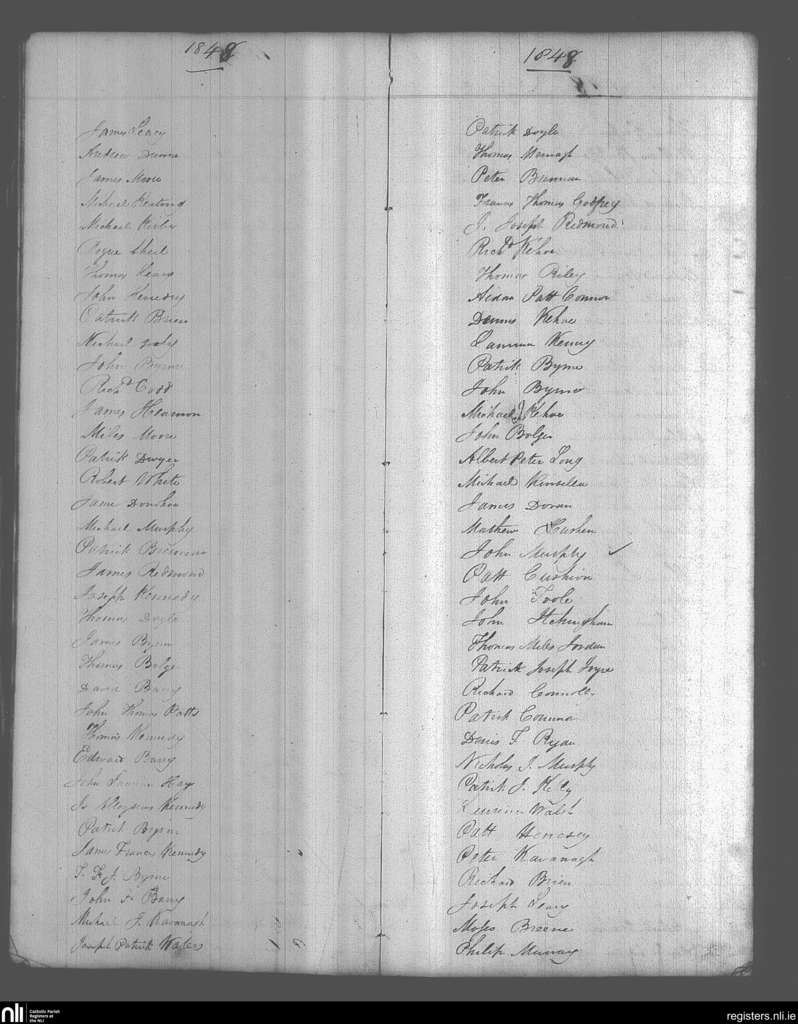 1848
James Leacy
Andrew Dunne
James Moore
Michael Redmond
Michael Kirby
Sheil
Thomas Leary
John Kennedy
Patrick Brien
Michael
John Byrne
Richd Codd
James Hearnon
Miles Moore
Patrick Dwyer
Robert White
James Donohoe
Michael Murphy
Patrick Brennan
James Redmond
Joseph Kennedy
Thomas Doyle
James Byrne
Thomas Bolger
David Barry
John Thomas Potts
Thomas Kennedy
Edward Barry
John Hay
Js Aloysius Kennedy
Patrick Byrne
James Francis Kennedy
T. F. J. Byrne
John F. Barry
Michael J. Kavanagh
Joseph Patrick Waters
1848
Patrick Doyle
Thomas Murnagh
Peter Brennan
Francis Thomas Godfrey
J. Joseph Redmond
Richd Kehoe
Thomas Riley
Aidan Patt Connor
Dennis Kehoe
Kenny
Patrick Byrne
John Byrne
Michael J Kehoe
John Bolger
Albert Peter Long
Michael Kinsella
James Doran
Mathew Cushen
John Murphy ✓
Patt Cushion
John Toole
John Itchingham
Thomas Miles Jordan
Patrick Joseph Joyce
Richard Connolly
Patrick Connor
Denis F. Ryan
Nicholas J. Murphy
Patrick J. Kelly
Walsh
Patt Hennesey
Peter Kavanagh
Richard Brien
Joseph Leary
Moses Breene
Philip Murray
nli
Catholic Parish
Registers at
the NLI
registers.nli.ie